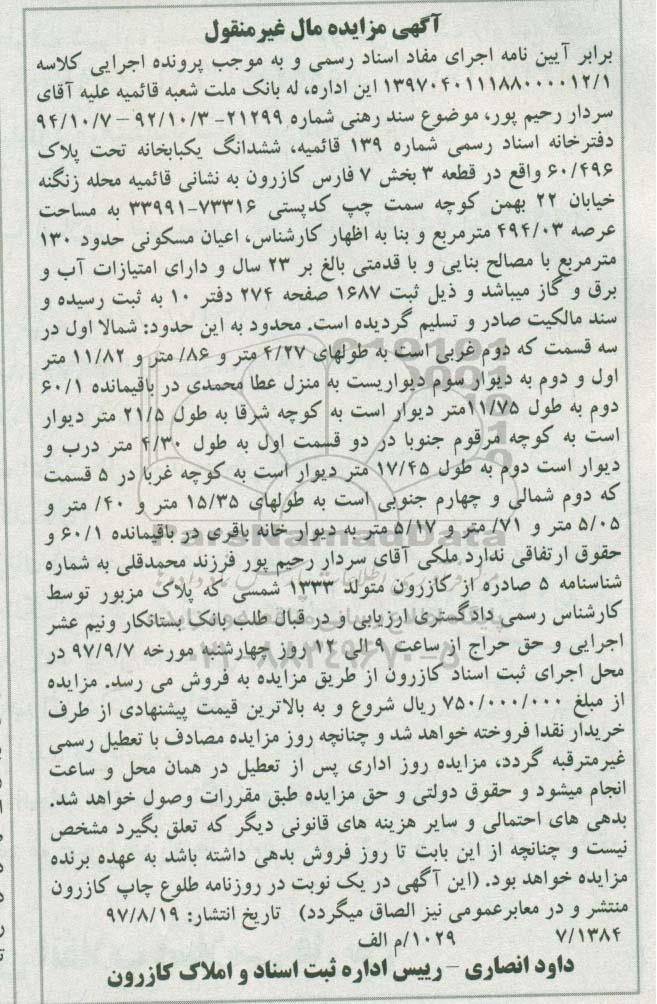 آگهی مزایده مال غیرمنقول
برابر آیین نامه اجرای مفاد اسناد رسمی و به موجب پرونده اجرایی کلاسه
۱۳۹۷۰۴۰۱۱۱۸۸۰۰۰۰۱۲/۱ این اداره، له بانک ملت شعبه قائمیه علیه آقای
سردار رحیم پور، موضوع سند رهنی شماره ۲۱۲۹۹- ۹۲/۱۰/۳ – ۹۴/۱۰/۷
دفترخانه اسناد رسمی شماره ۱۳۹ قائمیه، ششدانگ یکبابخانه تحت پلاک
۶۰/۴۹۶ واقع در قطعه ۳ بخش ۷ فارس کازرون به نشانی قائمیه محله زنگنه
خیابان ۲۲ بهمن کوچه سمت چپ کدپستی ۷۳۳۱۶-۳۳۹۹۱ به مساحت
عرصه ۴۹۴/۰۳ مترمربع و بنا به اظهار کارشناس، اعیان مسکونی حدود ۱۳۰
مترمربع با مصالح بنایی و با قدمتی بالغ بر ۲۳ سال و دارای امتیازات آب و
برق و گاز میباشد و ذیل ثبت ۱۶۸۷ صفحه ۲۷۴ دفتر ۱۰ به ثبت رسیده و
سند مالکیت صادر و تسلیم گردیده است. محدود به این حدود: شمالا اول در
سه قسمت که دوم غربی است به طولهای ۴/۲۷ متر و ۸۶/ متر و ۱۱/۸۲ متر
اول و دوم به دیوار سوم دیواریست به منزل عطا محمدی در باقیمانده ۶۰/۱
دوم به طول ۱۱/۷۵متر دیوار است به کوچه شرقا به طول ۲۱/۵ متر دیوار
است به کوچه مرقوم جنوبا در دو قسمت اول به طول ۴/۳۰ متر درب و
دیوار است دوم به طول ۱۷/۴۵ متر دیوار است به کوچه غربا در ۵ قسمت
که دوم شمالی و چهارم جنوبی است به طولهای ۱۵/۳۵ متر و ۴۰/ متر و
۵/۰۵ متر و ۷۱/ متر و ۵/۱۷ متر به دیوار خانه باقری در باقیمانده ۶۰/۱ و
حقوق ارتفاقی ندارد.ملکی آقای سردار رحیم پور فرزند محمدقلی به شماره
شناسنامه ۵ صادره از کازرون متولد ۱۳۳۳ شمسی که پلاک مزبور توسط
کارشناس رسمی دادگستری ارزیابی و در قبال طلب بانک بستانکار ونیم عشر
اجرایی و حق حراج از ساعت ۹ الی ۱۲ روز چهارشنبه مورخه ۹۷/۹/۷ در
محل اجرای ثبت اسناد کازرون از طریق مزایده به فروش می رسد. مزایده
از مبلغ ۷۵۰/۰۰۰/۰۰۰ ریال شروع و به بالاترین قیمت پیشنهادی از طرف
خریدار نقدا فروخته خواهد شد و چنانچه روز مزایده مصادف با تعطیل رسمی
غیرمترقبه گردد، مزایده روز اداری پس از تعطیل در همان محل و ساعت
انجام میشود و حقوق دولتی و حق مزایده طبق مقررات وصول خواهد شد.
بدهی های احتمالی و سایر هزینه های قانونی دیگر که تعلق بگیرد مشخص
نیست و چنانچه از این بابت تا روز فروش بدهی داشته باشد به عهده برنده
مزایده خواهد بود. (این آگهی در یک نوبت در روزنامه طلوع چاپ کازرون
منتشر و در معابرعمومی نیز الصاق میگردد) تاریخ انتشار: ۹۷/۸/۱۹
۷/۱۳۸۴ ۱۰۲۹/م الف
داود انصاری – رییس اداره ثبت اسناد و املاک کازرون
ParsNamadData